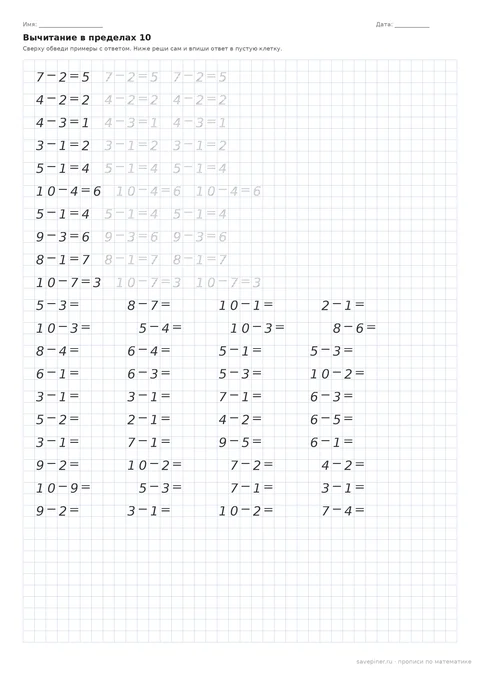 Имя: ____________________ Дата: ___________
Вычитание в пределах 10
Сверху обведи примеры с ответом. Ниже реши сам и впиши ответ в пустую клетку.
7−2=5 7−2=5 7−2=5
4−2=2 4−2=2 4−2=2
4−3=1 4−3=1 4−3=1
3−1=2 3−1=2 3−1=2
5−1=4 5−1=4 5−1=4
10−4=6 10−4=6 10−4=6
5−1=4 5−1=4 5−1=4
9−3=6 9−3=6 9−3=6
8−1=7 8−1=7 8−1=7
10−7=3 10−7=3 10−7=3
5−3= 8−7= 10−1= 2−1=
10−3= 5−4= 10−3= 8−6=
8−4= 6−4= 5−1= 5−3=
6−1= 6−3= 5−3= 10−2=
3−1= 3−1= 7−1= 6−3=
5−2= 2−1= 4−2= 6−5=
3−1= 7−1= 9−5= 6−1=
9−2= 10−2= 7−2= 4−2=
10−9= 5−3= 7−1= 3−1=
9−2= 3−1= 10−2= 7−4=
savepiner.ru · прописи по математике